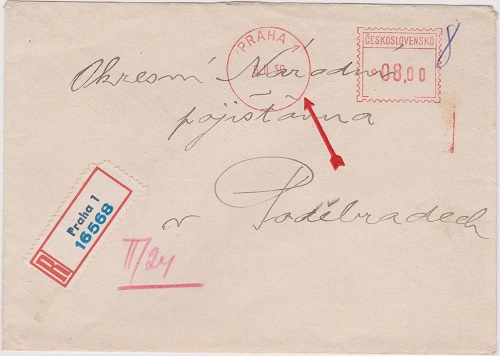 PRAHA 1
ČESKOSLOVENSKO
08,00
8
Okresní Národní
pojišťovna
v Poděbradech
R
Praha 1
16568
II/24